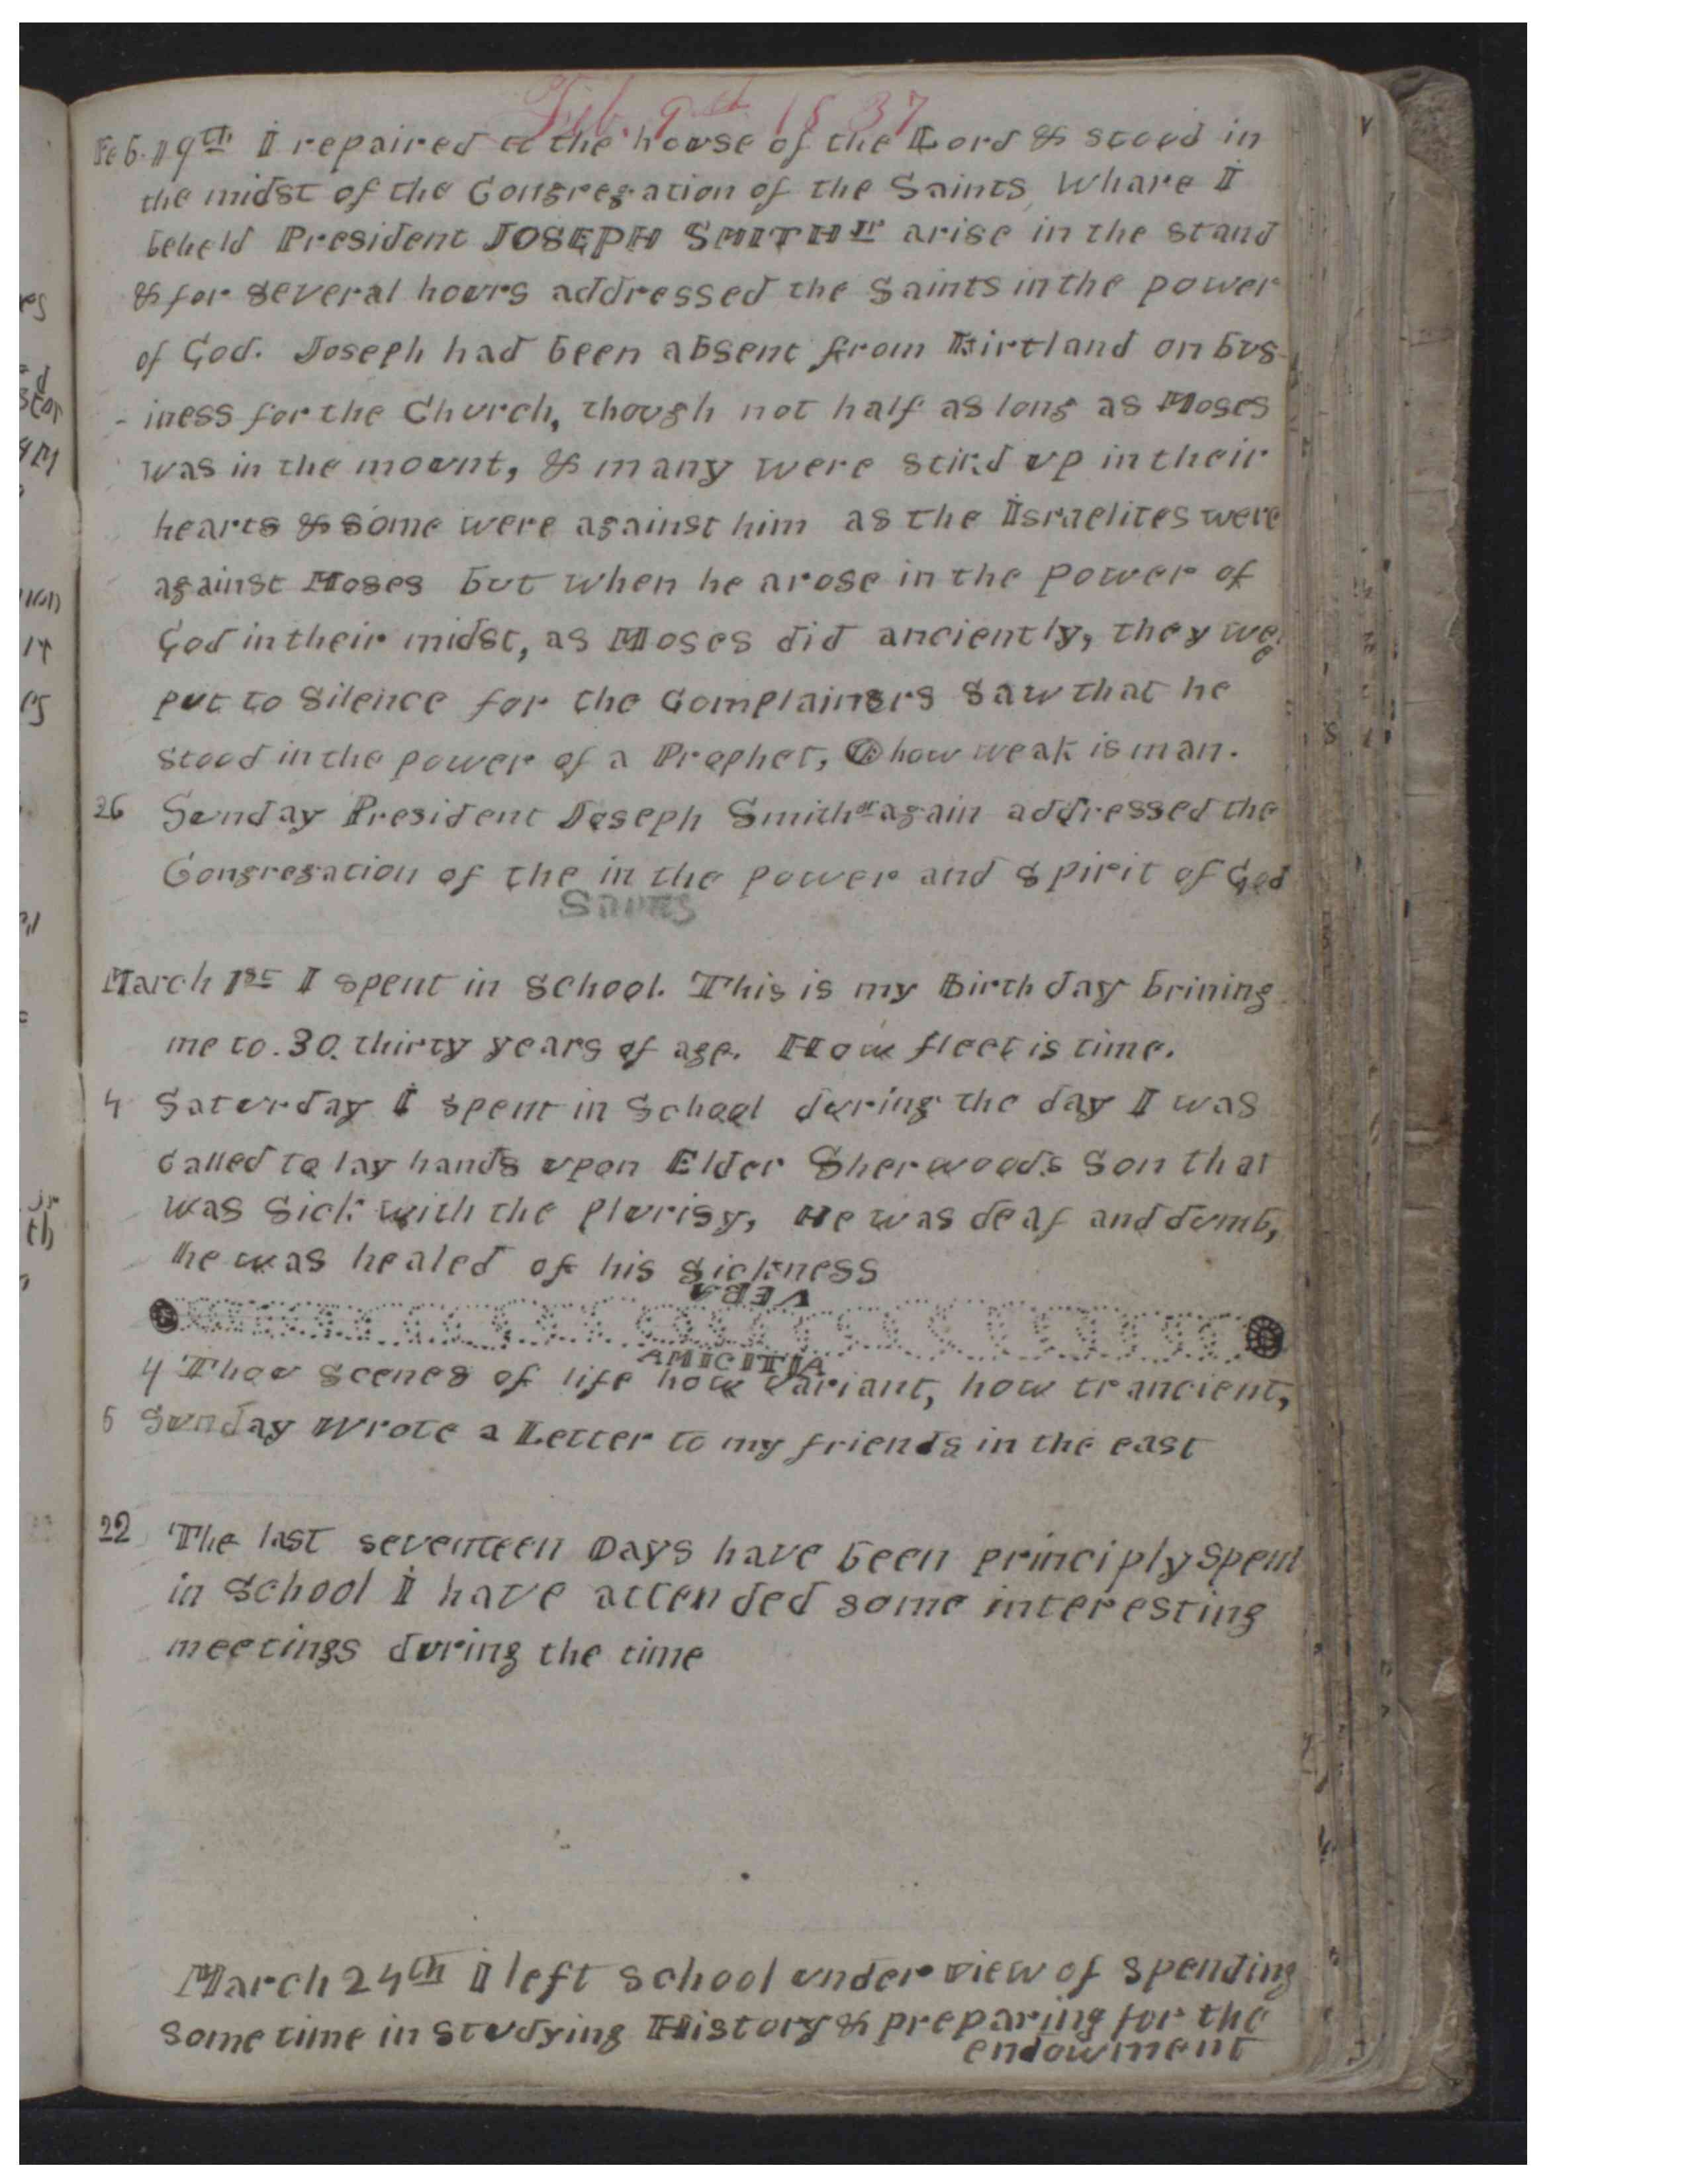 Feb. 9th 1837
Feb. 19th I repaired to the house of the Lord & stood in
the midst of the Congregation of the Saints Whare I
beheld President JOSEPH SMITH Jr arise in the stand
& for several hours addressed the Saints in the power
of God. Joseph had been absent from Kirtland on bus-
-iness for the Church, though not half as long as Moses
was in the mount, & many were stir.d up in their
hearts & some were against him as the Israelites were
against Moses but when he arose in the power of
God in their midst, as Moses did anciently, they were
put to silence for the Complainers saw that he
stood in the power of a Prophet, O how weak is man.
26 Sunday President Joseph Smith jr again addressed the
Congregation of the in the power and spirit of God
Saints
March 1st I spent in School. This is my Birth day brining
me to .30. thirty years of age. How fleet is time.
4 Saturday I spent in School during the day I was
called to lay hands upon Elder Sherwoods son that
was sick with the plurisy, He was deaf and dumb,
he was healed of his sickness
VERA
AMICITIA
4 Thou scenes of life how variant, how trancient,
5 Sunday Wrote a Letter to my friends in the east
22 The last seventeen Days have been principly spent
in School I have attended some interesting
meetings during the time
March 24th I left school under view of spending
some time in studying History & preparing for the
endowment